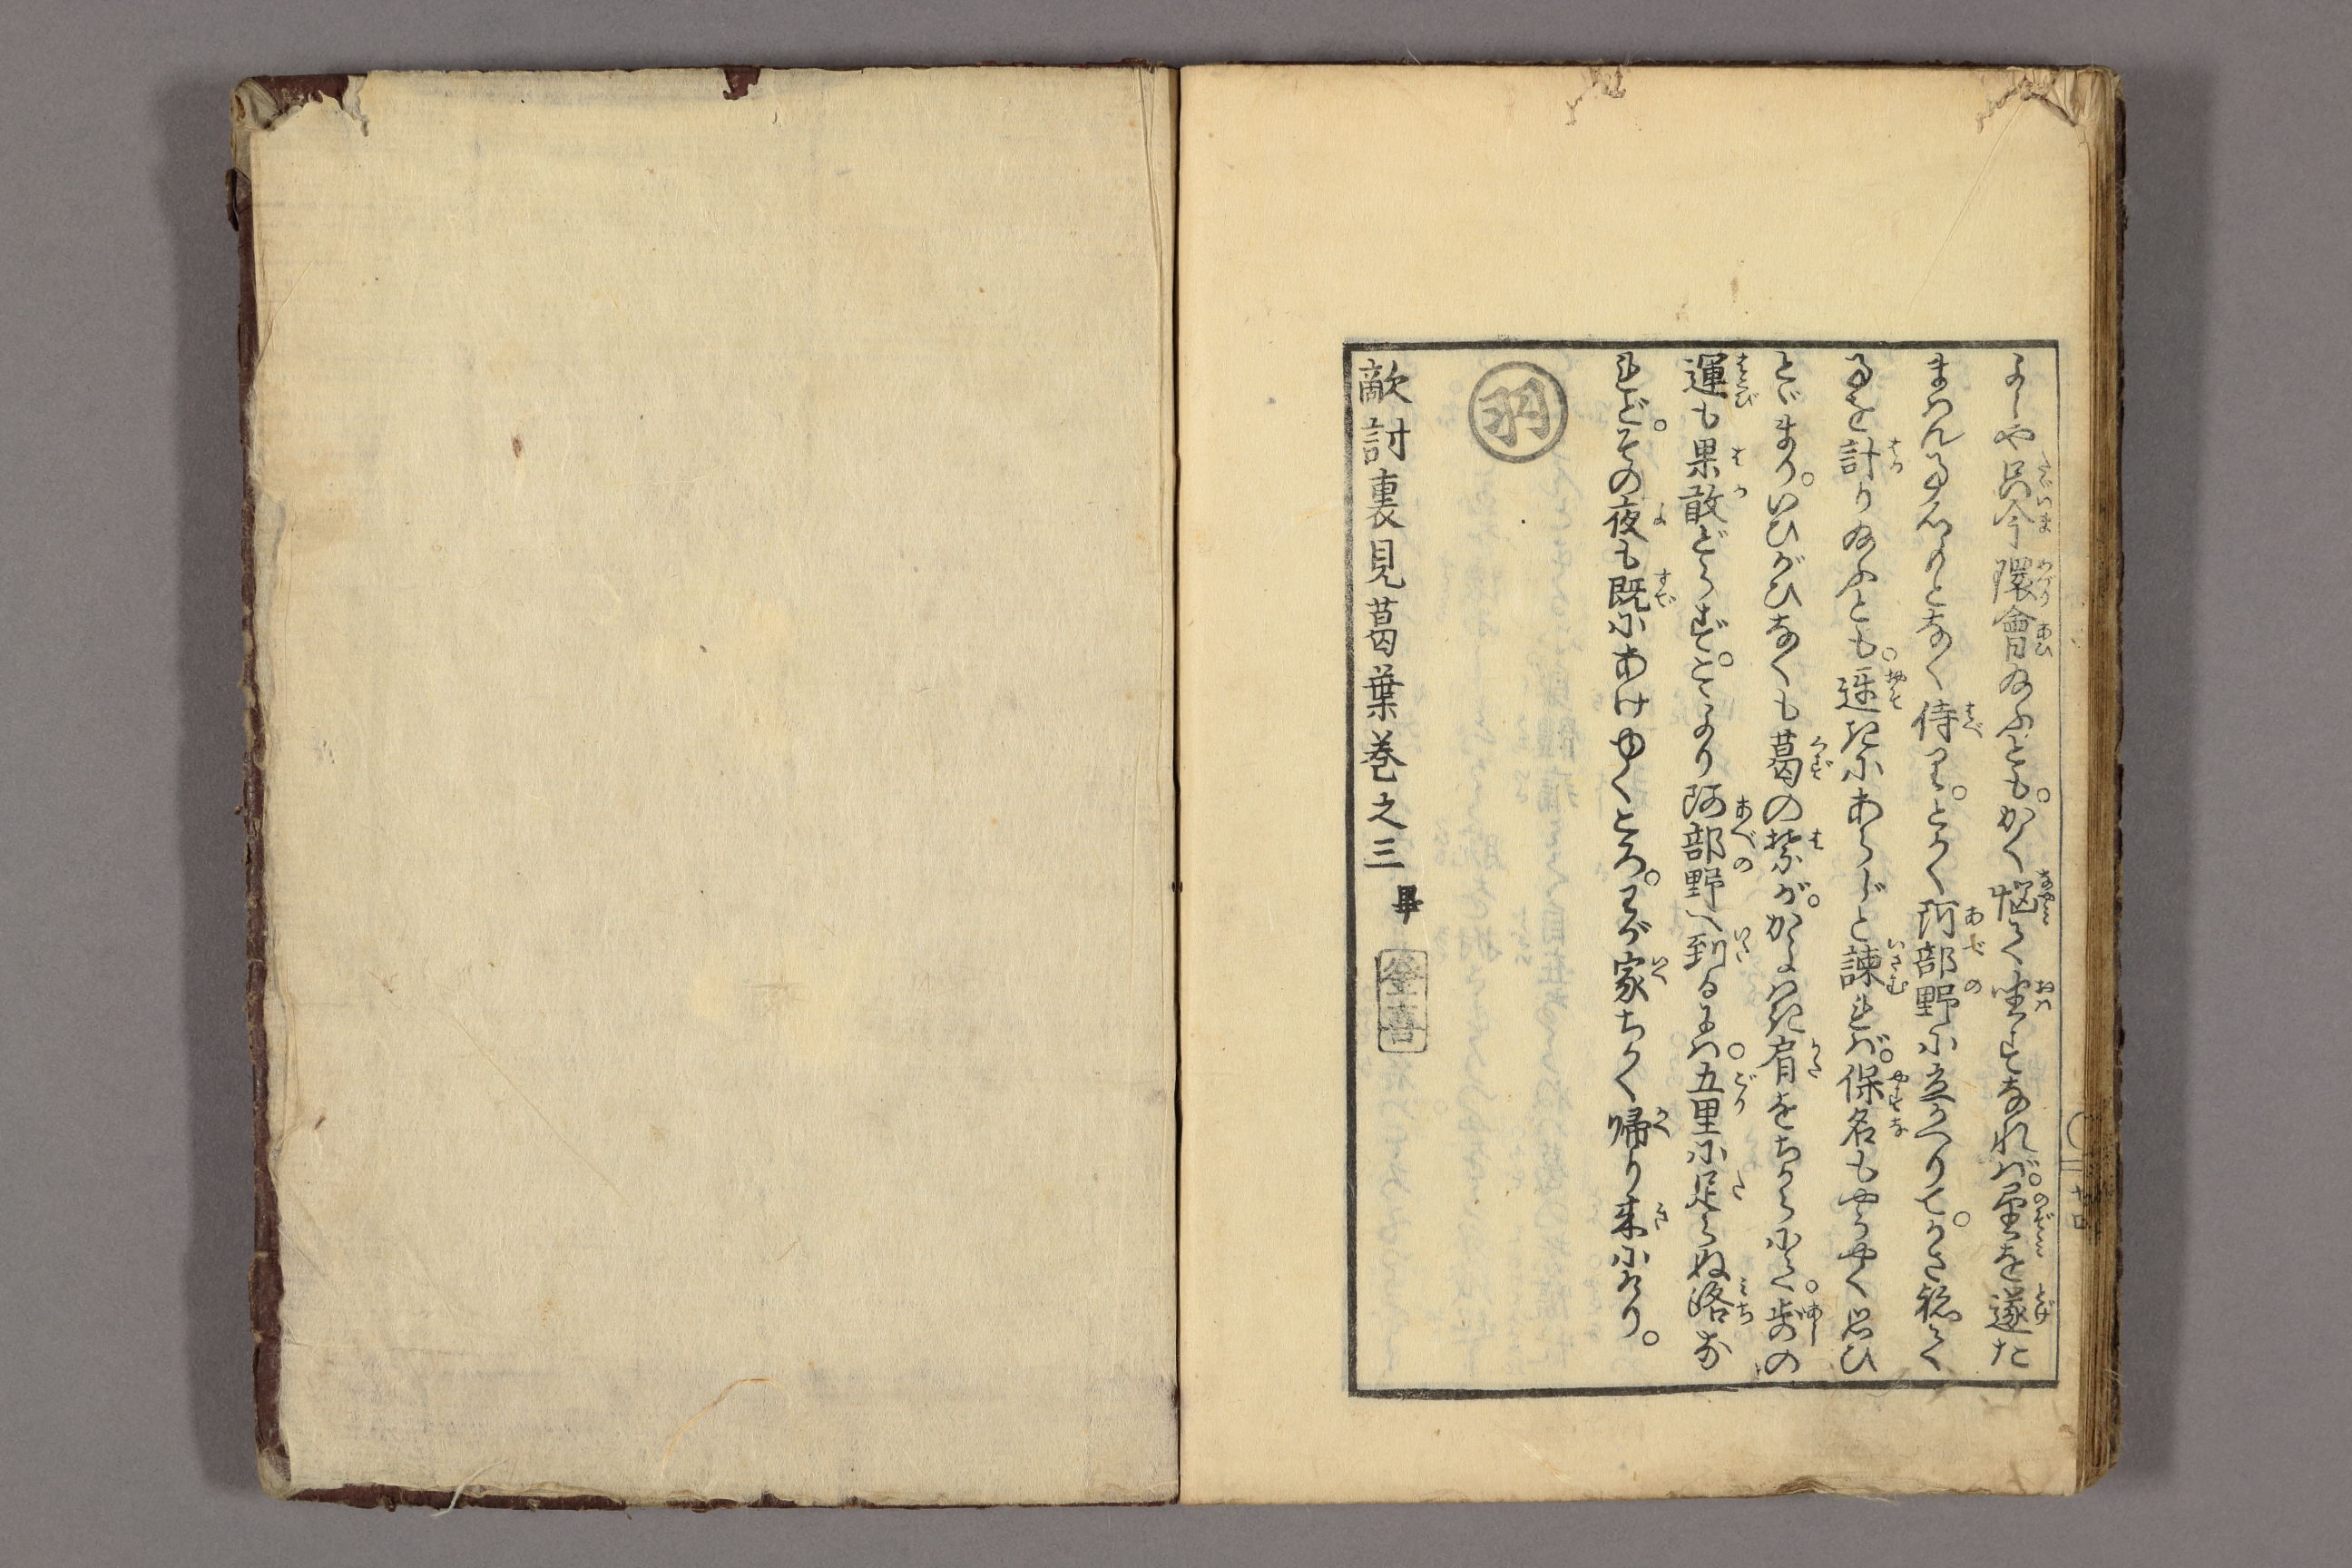 よしや只今環會給ふとも。かく悩しく坐すなれば。望を遂た
まはん事かたくもなく侍り。とく阿部野に立かへりて。かさねて
事を計り給ふとも。遅きにあらじと諫れば。保名もやうやく思ひ
とゞまり。いひがひなくも葛の葉が。かよはき肩をちからにて。歩の
運も果敢どらず。こゝより阿部野へ到るには。五里に足らぬ路な
れど。その夜も既にあけゆくころ。わが家ちかく帰り来にけり。
羽
敵討裏見葛葉巻之三 畢